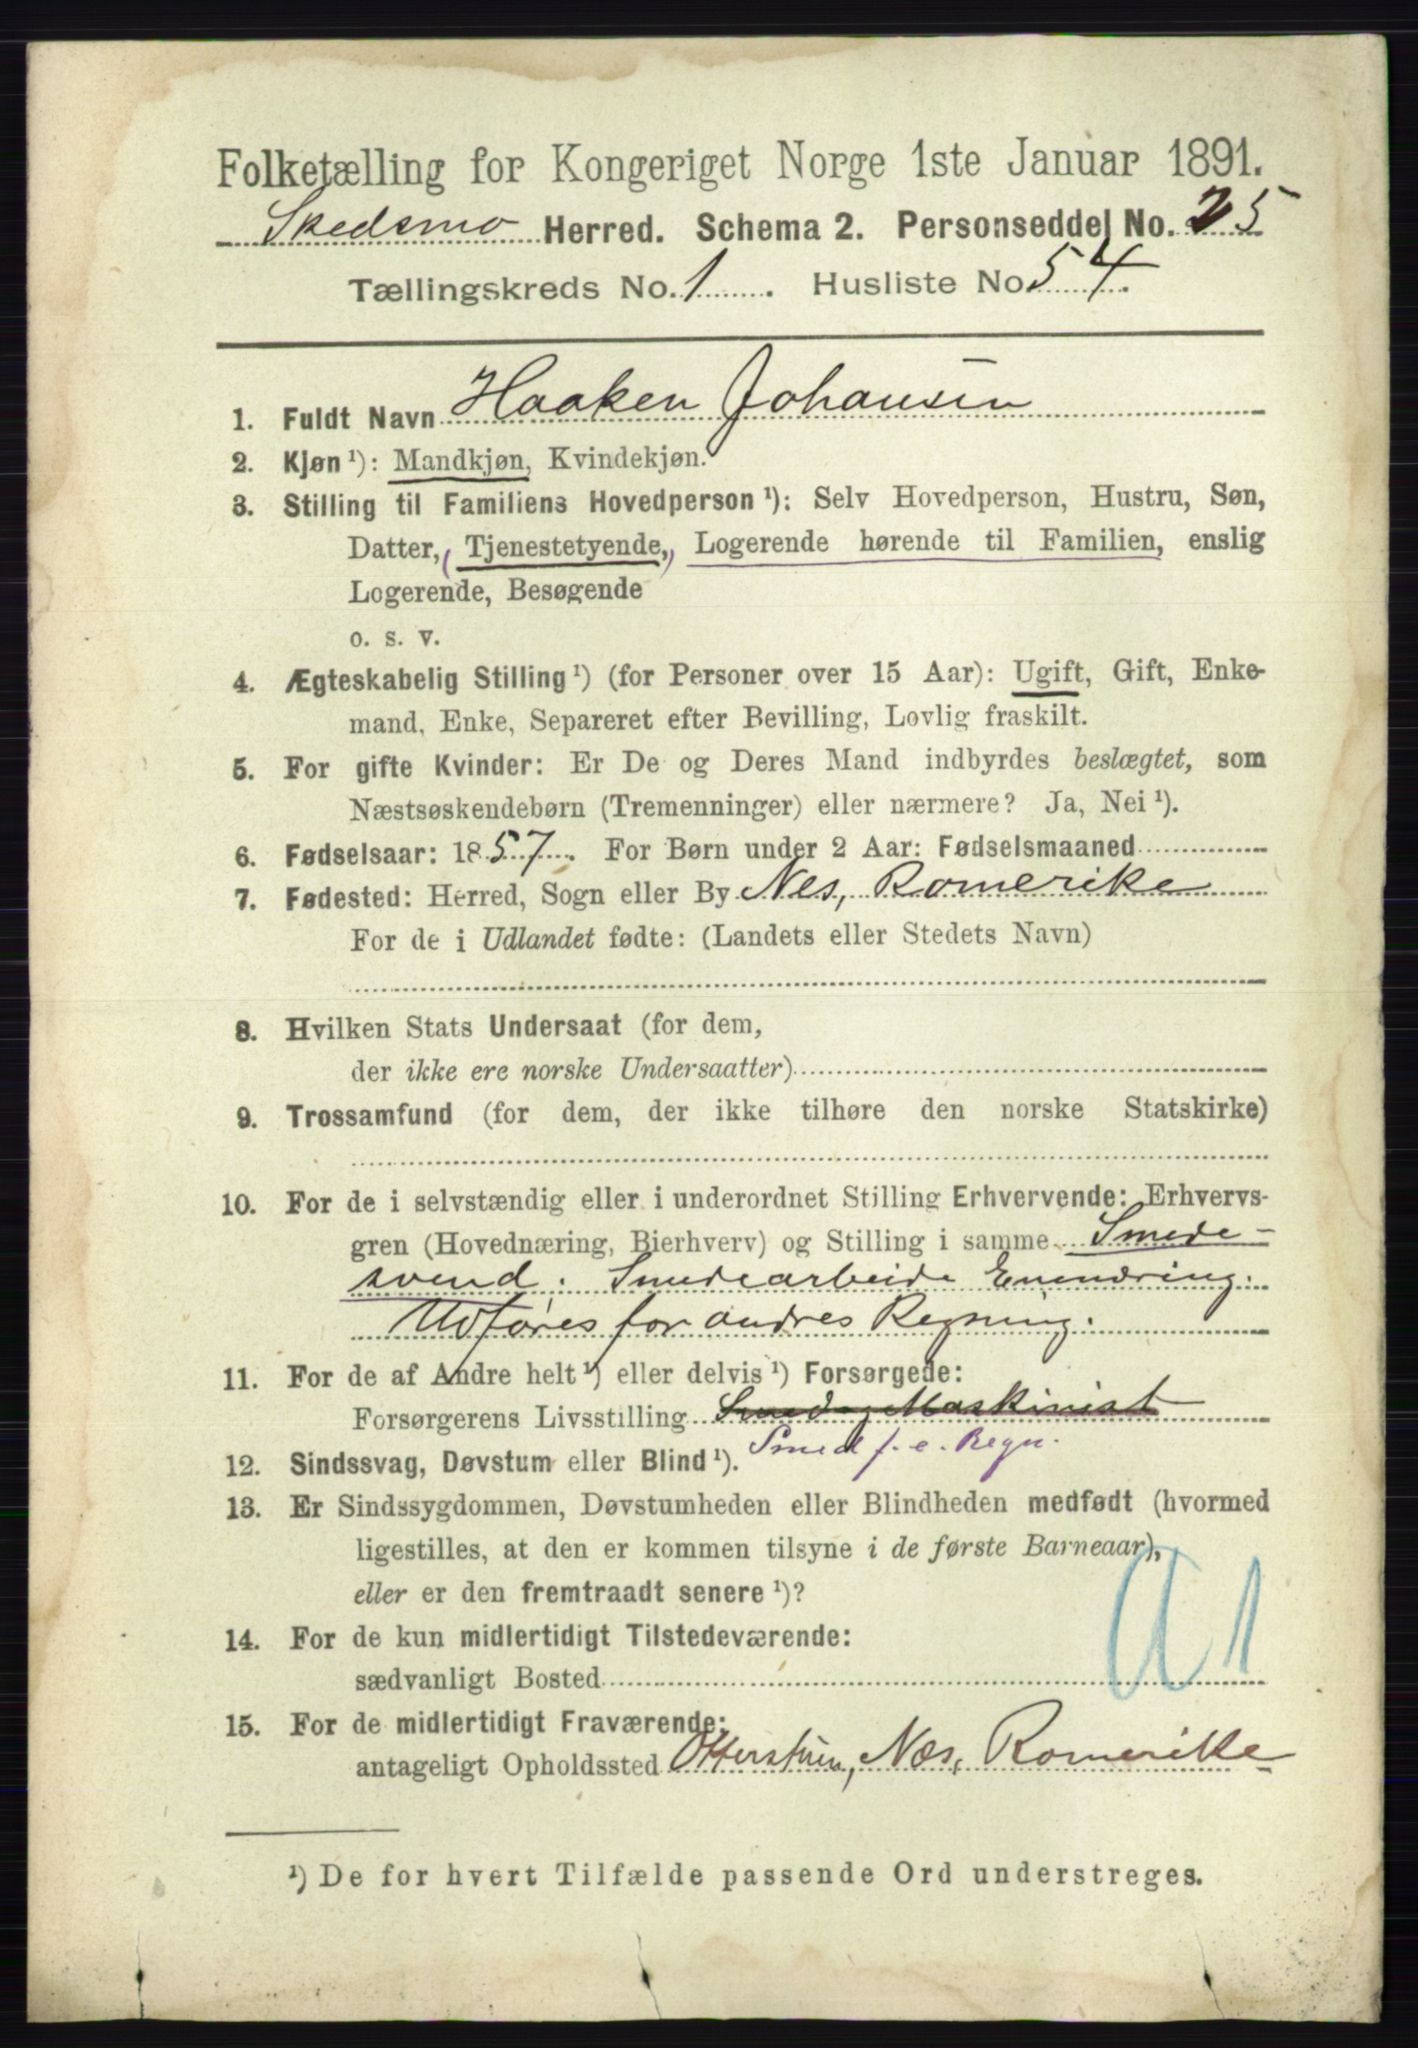 Folketælling for Kongeriget Norge 1ste Januar 1891.
Skedsmo Herred. Schema 2. Personseddel No. 25
Tællingskreds No. 1. Husliste No 54.
1. Fuldt Navn Haaken Johansen
2. Kjøn ¹): Mandkjøn, Kvindekjøn.
3. Stilling til Familiens Hovedperson ¹): Selv Hovedperson, Hustru, Søn,
Datter, (Tjenestetyende,) Logerende hørende til Familien, enslig
Logerende, Besøgende
o. s. v.
4. Ægteskabelig Stilling ¹) (for Personer over 15 Aar): Ugift, Gift, Enke-
mand, Enke, Separeret efter Bevilling, Lovlig fraskilt.
5. For gifte Kvinder: Er De og Deres Mand indbyrdes beslægtet, som
Næstsøskendebørn (Tremenninger) eller nærmere? Ja, Nei ¹).
6. Fødselsaar: 1857. For Børn under 2 Aar: Fødselsmaaned
7. Fødested: Herred, Sogn eller By Nes, Romerike
For de i Udlandet fødte: (Landets eller Stedets Navn)
8. Hvilken Stats Undersaat (for dem,
der ikke ere norske Undersaatter)
9. Trossamfund (for dem, der ikke tilhøre den norske Statskirke)
10. For de i selvstændig eller i underordnet Stilling Erhvervende: Erhvervs-
gren (Hovednæring, Bierhverv) og Stilling i samme Smede-
svend. Smedearbeide
Udføres for andres Regning.
11. For de af Andre helt ¹) eller delvis ¹) Forsørgede:
Forsørgerens Livsstilling Smed og Maskinist
Smed f. e. Regn.
12. Sindssvag, Døvstum eller Blind ¹).
13. Er Sindssygdommen, Døvstumheden eller Blindheden medfødt (hvormed
ligestilles, at den er kommen tilsyne i de første Barneaar),
eller er den fremtraadt senere ¹)?
14. For de kun midlertidigt Tilstedeværende:
sædvanligt Bosted
a 1
15. For de midlertidigt Fraværende:
antageligt Opholdssted Næs, Romerike
¹) De for hvert Tilfælde passende Ord understreges.